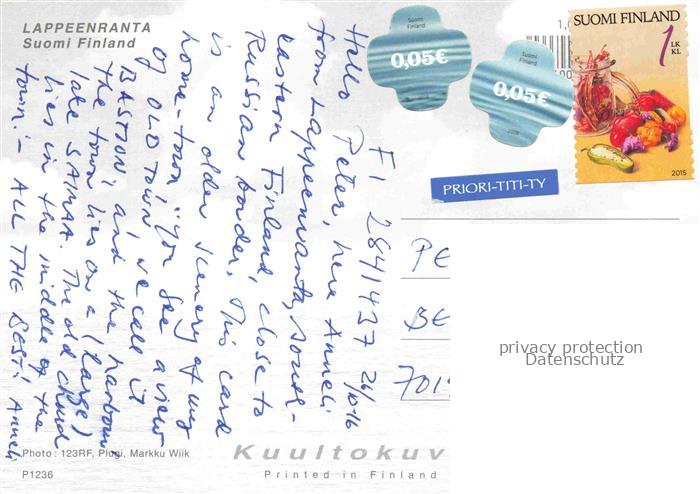 LAPPEENRANTA
Suomi Finland
Suomi
Finland
0,05€
Suomi
Finland
0,05€
2008
1,0
SUOMI FINLAND
1 LK
KL
2015
PRIORI-TITI-TY
FI 2841437 26/10-16
Hello Peter, here Anneli
from Lappeenranta, South-
eastern Finland, close to
Russian border. This card
is an older scenery of my
home-town: you see a view
of OLD TOWN we call it
BASTION and the harbour,
the town lies on a (large)
lake SAIMAA. The old church
lies in the middle of the
town:- ALL THE BEST! Anneli
PE
BE
701
privacy protection
Datenschutz
Photo : 123RF, Plugi, Markku Wiik
P1236
Kuultokuv
Printed in Finland